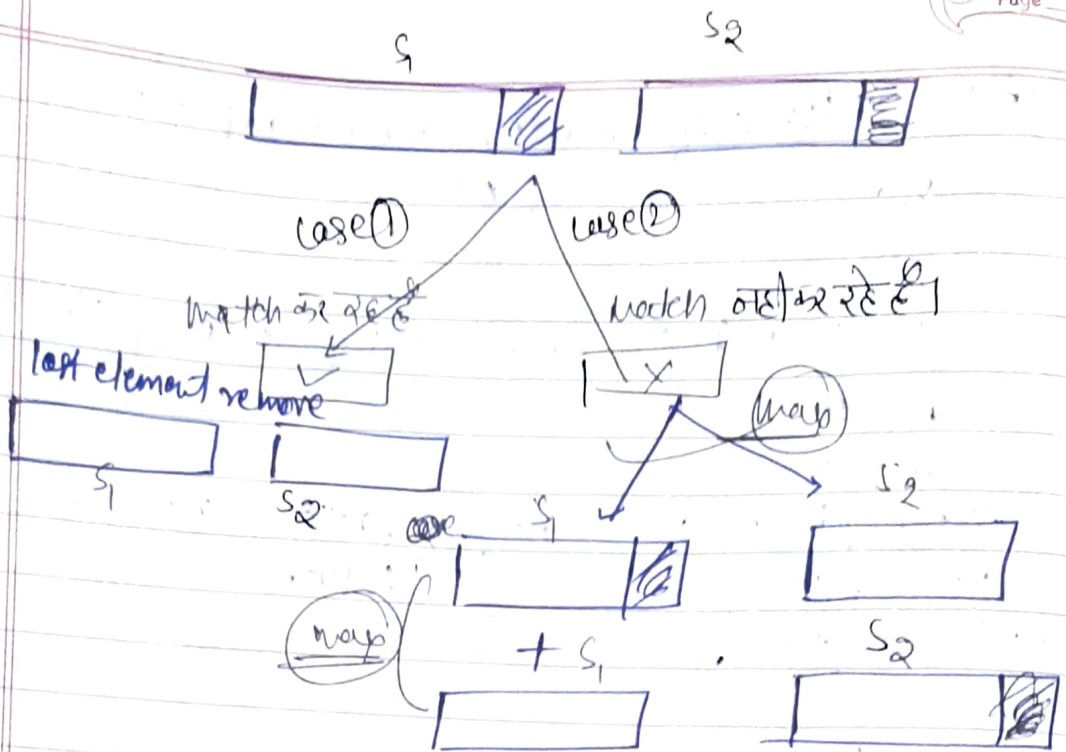 Page
S1 S2
case ① case ②
match कर रहे हैं match नहीं कर रहे हैं।
✓ ×
last element remove
max
S1 S2 S1 S2
max + S1 S2